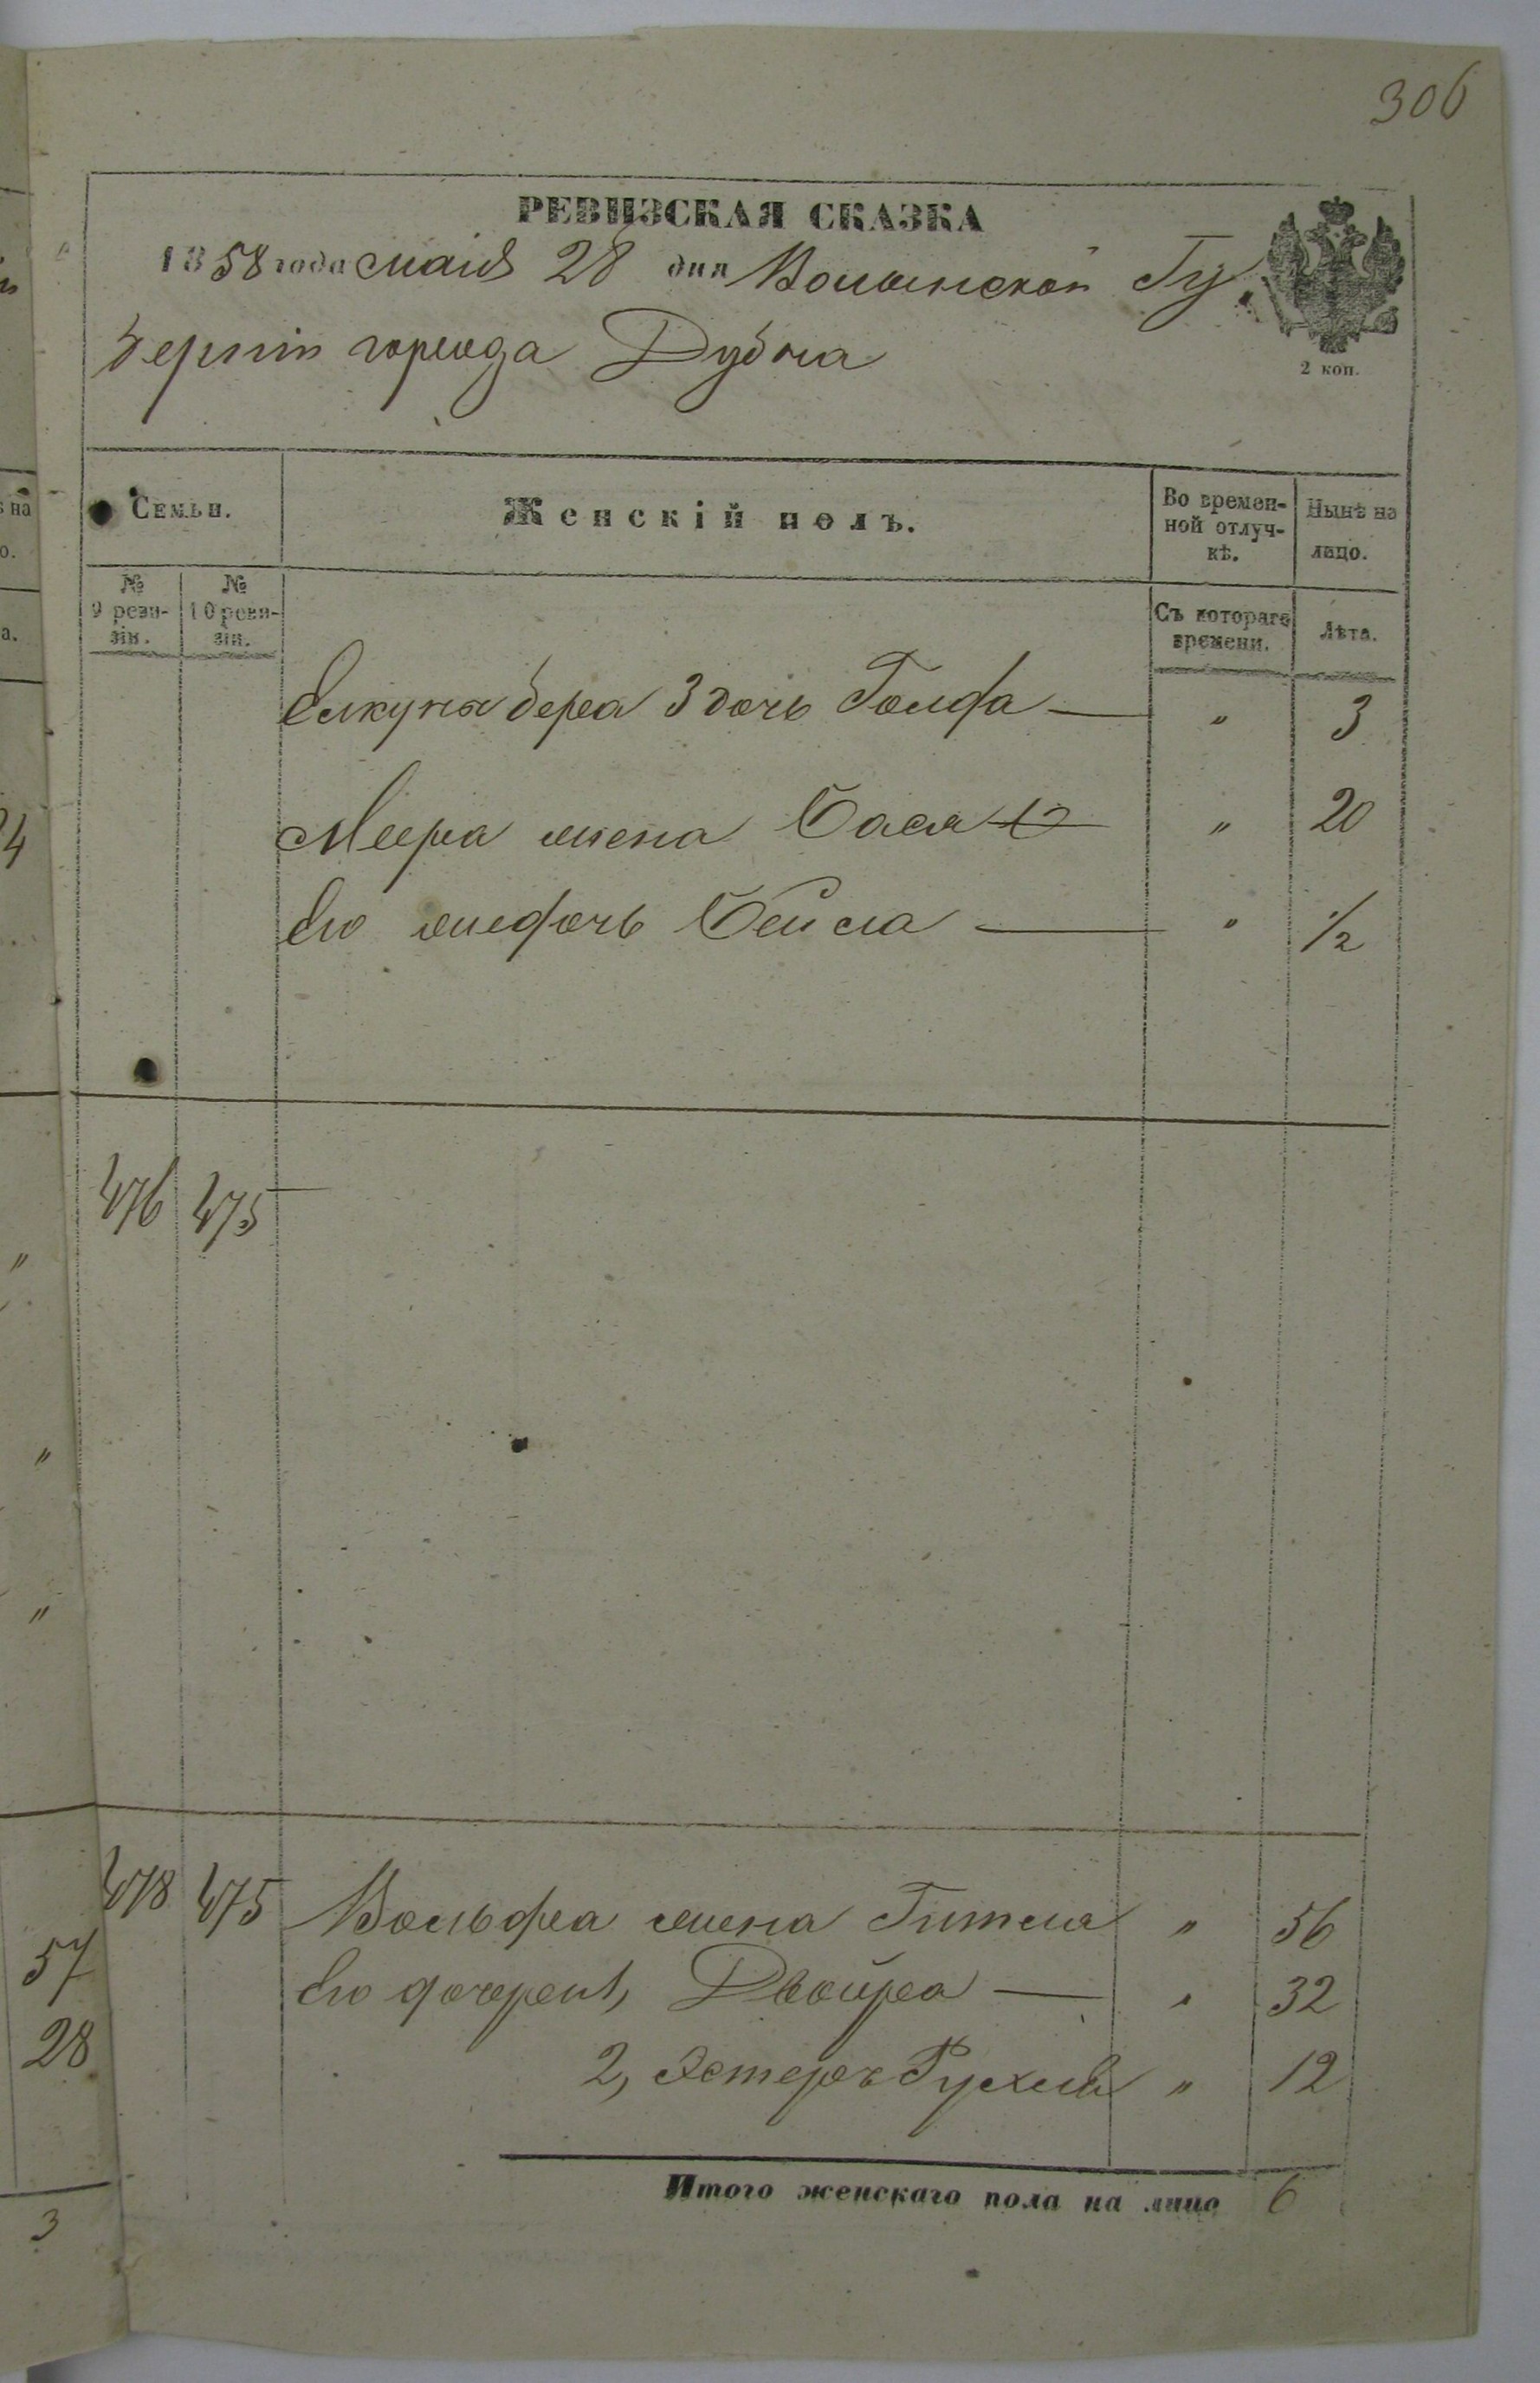 306
РЕВИЗСКАЯ СКАЗКА
1858 года маія 28 дня Волынской Гу
берніи города Дубна
2 коп.
Семьи.
Женскій полъ.
Во времен-
ной отлуч-
кѣ.
Нынѣ на
лицо.
№
9 реви-
зіи.
№
10 реви-
зіи.
Съ котораго
времени.
Лѣта.
Бера 3 дочь Голда — " 3
Меера жена Бася " 20
Его дочь Бейла — " 1/2
476 475
478 475 Вольфа жена Гитля " 56
Его дочери 1, Двойра — " 32
2, Эстеръ Рухля " 12
Итого женскаго пола на лицо 6
на
о.
а.
24
"
"
"
57
28
3